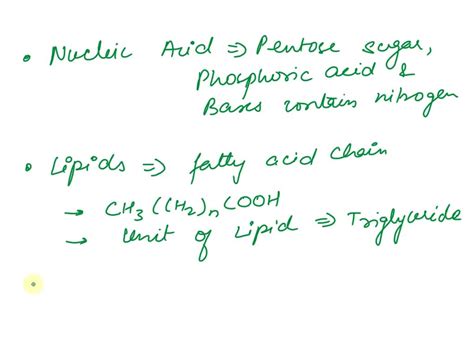 • Nucleic Acid ⇒ Pentose sugar,
Phosphoric acid &
Bases contain nitrogen
• Lipids ⇒ fatty acid chain
→ CH3(CH2)nCOOH
→ Unit of Lipid ⇒ Triglyceride
•